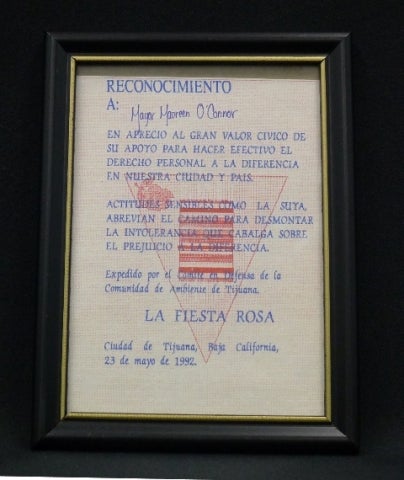 RECONOCIMIENTO
A: Mayor Maureen O'Connor
EN APRECIO AL GRAN VALOR CIVICO DE
SU APOYO PARA HACER EFECTIVO EL
DERECHO PERSONAL A LA DIFERENCIA
EN NUESTRA CIUDAD Y PAIS.
ACTITUDES SENSIBLES COMO LA SUYA,
ABREVIAN EL CAMINO PARA DESMONTAR
LA INTOLERANCIA QUE CABALGA SOBRE
EL PREJUICIO A LA DIFERENCIA.
Expedido por el Comite en Defensa de la
Comunidad de Ambiente de Tijuana.
LA FIESTA ROSA
Ciudad de Tijuana, Baja California,
23 de mayo de 1992.